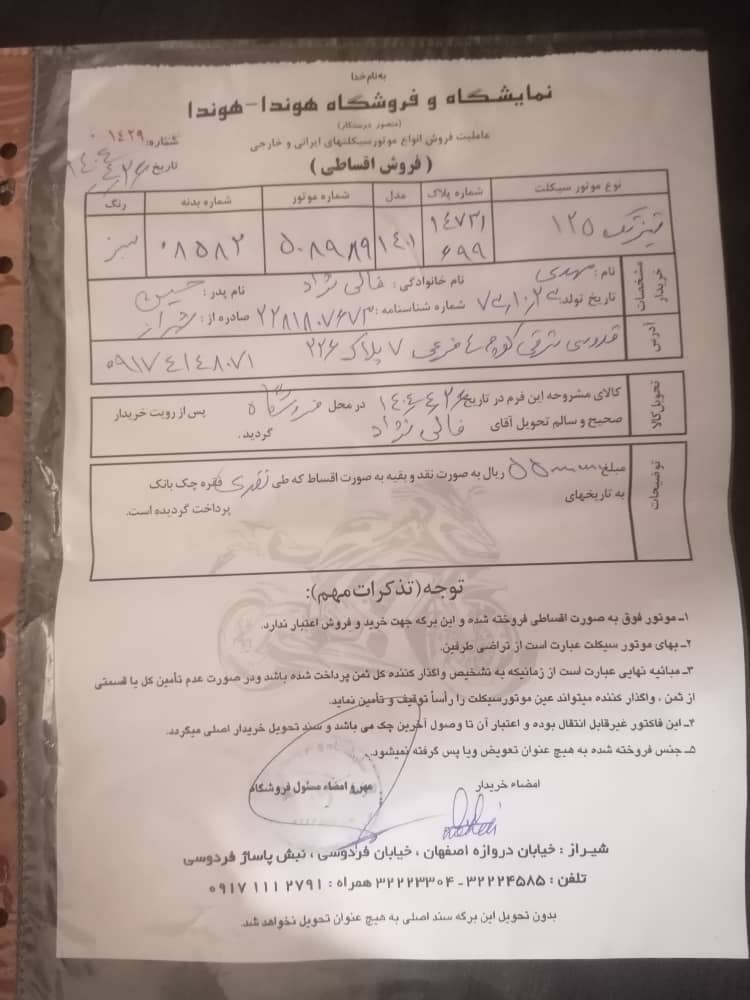 به نام خدا
نمایشگاه و فروشگاه هوندا-هوندا
(منصور درستکار)
عاملیت فروش انواع موتورسیکلتهای ایرانی و خارجی
( فروش اقساطی )
شماره: ۱۴۲۹
تاریخ ۱۴۰۴/۴/۲۶
نوع موتور سیکلت شماره پلاک مدل شماره موتور شماره بدنه رنگ
۱۲۵ ۱۴۷۳۱ ۶۹۹ ۱۴۰۱ ۵۰۸۹۸۹ ۰۸۵۸۲ سبز
مشخصات خریدار
نام: مهدی نام خانوادگی: خالی نژاد نام پدر: حسین
تاریخ تولد: شماره شناسنامه: ۲۲۸۱۸۰۷۶۷۳ صادره از: شیراز
آدرس
قدوسی شرقی کوچه فرعی ۷ پلاک ۲۲۶
۰۹۱۷۴۱۴۸۰۷۱
تحویل کالا
کالای مشروحه این فرم در تاریخ ۱۴۰۴/۴/۲۶ در محل فروشگاه پس از رویت خریدار
صحیح و سالم تحویل آقای خالی نژاد گردید.
توضیحات
مبلغ ریال به صورت نقد و بقیه به صورت اقساط که طی نقدی فقره چک بانک
به تاریخهای پرداخت گردیده است.
توجه (تذکرات مهم):
۱ـ موتور فوق به صورت اقساطی فروخته شده و این برگه جهت خرید و فروش اعتبار ندارد.
۲ـ بهای موتور سیکلت عبارت است از تراضی طرفین.
۳ـ مبائیه نهایی عبارت است از زمانیکه به تشخیص واگذار کننده کل ثمن پرداخت شده باشد ودر صورت عدم تأمین کل یا قسمتی
از ثمن ، واگذار کننده میتواند عین موتورسیکلت را رأساً توقیف و تأمین نماید.
۴ـ این فاکتور غیرقابل انتقال بوده و اعتبار آن تا وصول آخرین چک می باشد و سند تحویل خریدار اصلی میگردد.
۵ـ جنس فروخته شده به هیچ عنوان تعویض ویا پس گرفته نمیشود.
امضاء خریدار مهر و امضاء مسئول فروشگاه
شیراز : خیابان دروازه اصفهان ، خیابان فردوسی ، نبش پاساژ فردوسی
تلفن : ۳۲۲۲۴۵۸۵ - ۳۲۲۲۳۳۰۴ همراه : ۰۹۱۷ ۱۱۱ ۲۷۹۱
بدون تحویل این برگه سند اصلی به هیچ عنوان تحویل نخواهد شد.